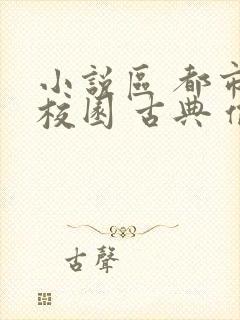 小說區 都市
校園 古典
古聲